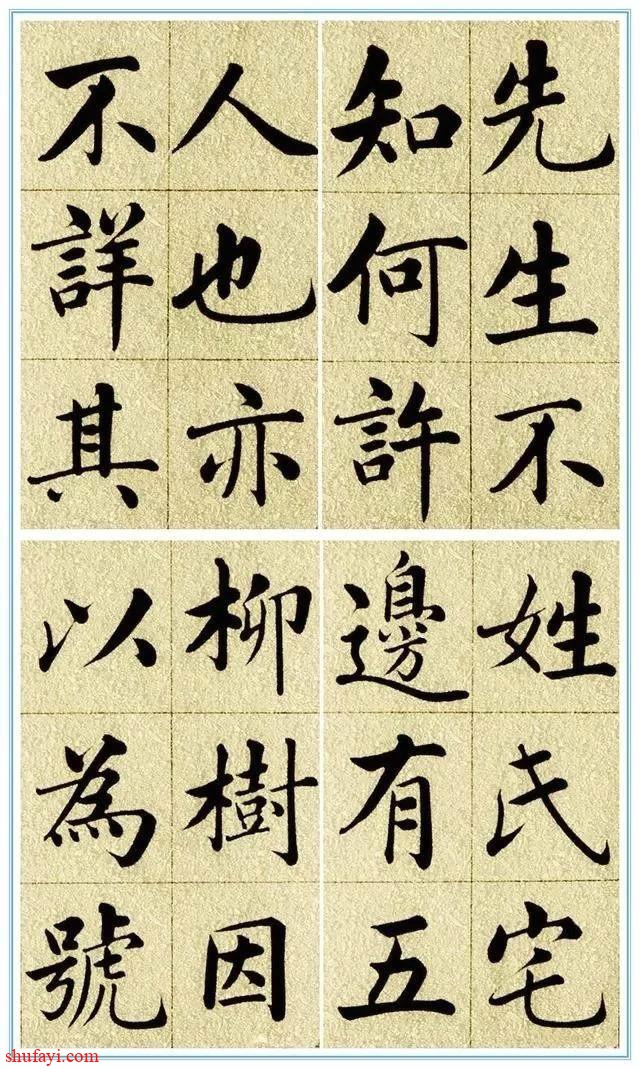 先生不
知何許
人也亦
不詳其
姓氏宅
邊有五
柳樹因
以為號
shufayi.com